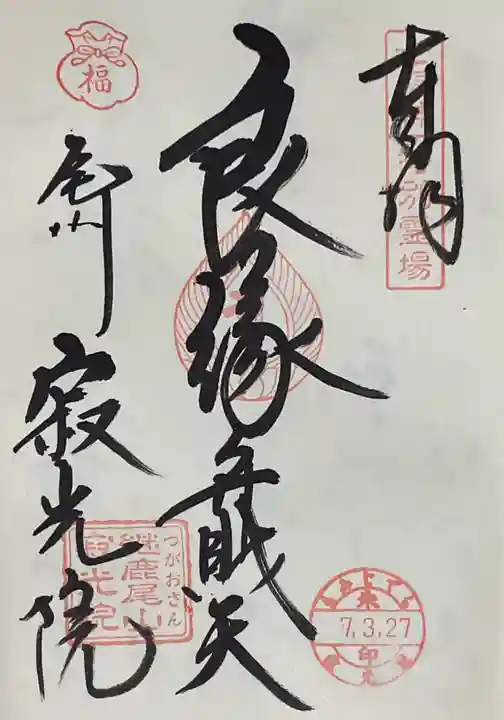 奉拝
霊場
良縁弁財天
7.3.27
福
尾州
寂光院
つがおさん
継鹿尾山
寂光院